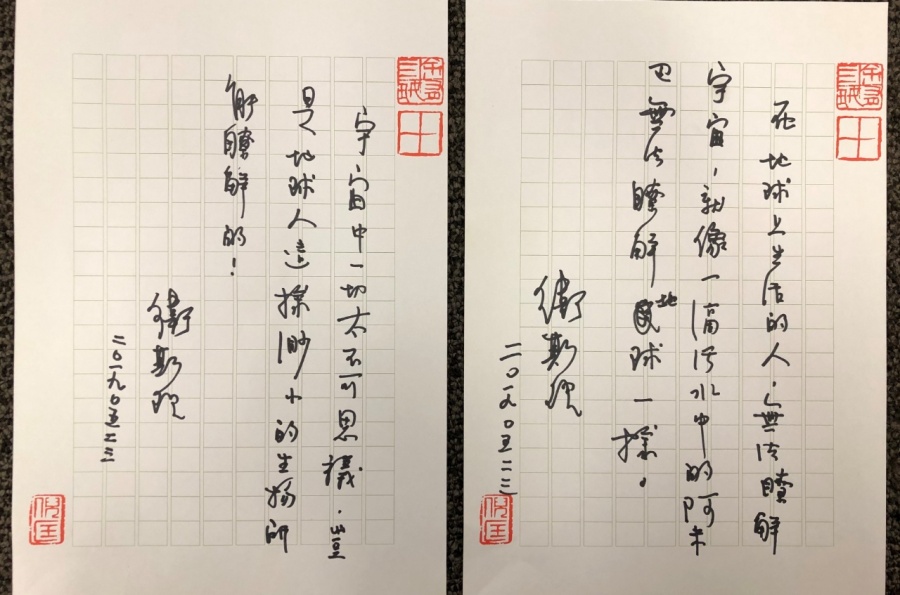 在地球上生活的人,無法瞭解
宇宙,就像一滴污水中的阿米
巴無法瞭解地球一樣。
衛斯理
二〇一九〇五二三
倪匡
宇宙中一切太不可思議,豈
是地球人這樣渺小的生物所
能瞭解的!
衛斯理
二〇一九〇五二三
倪匡